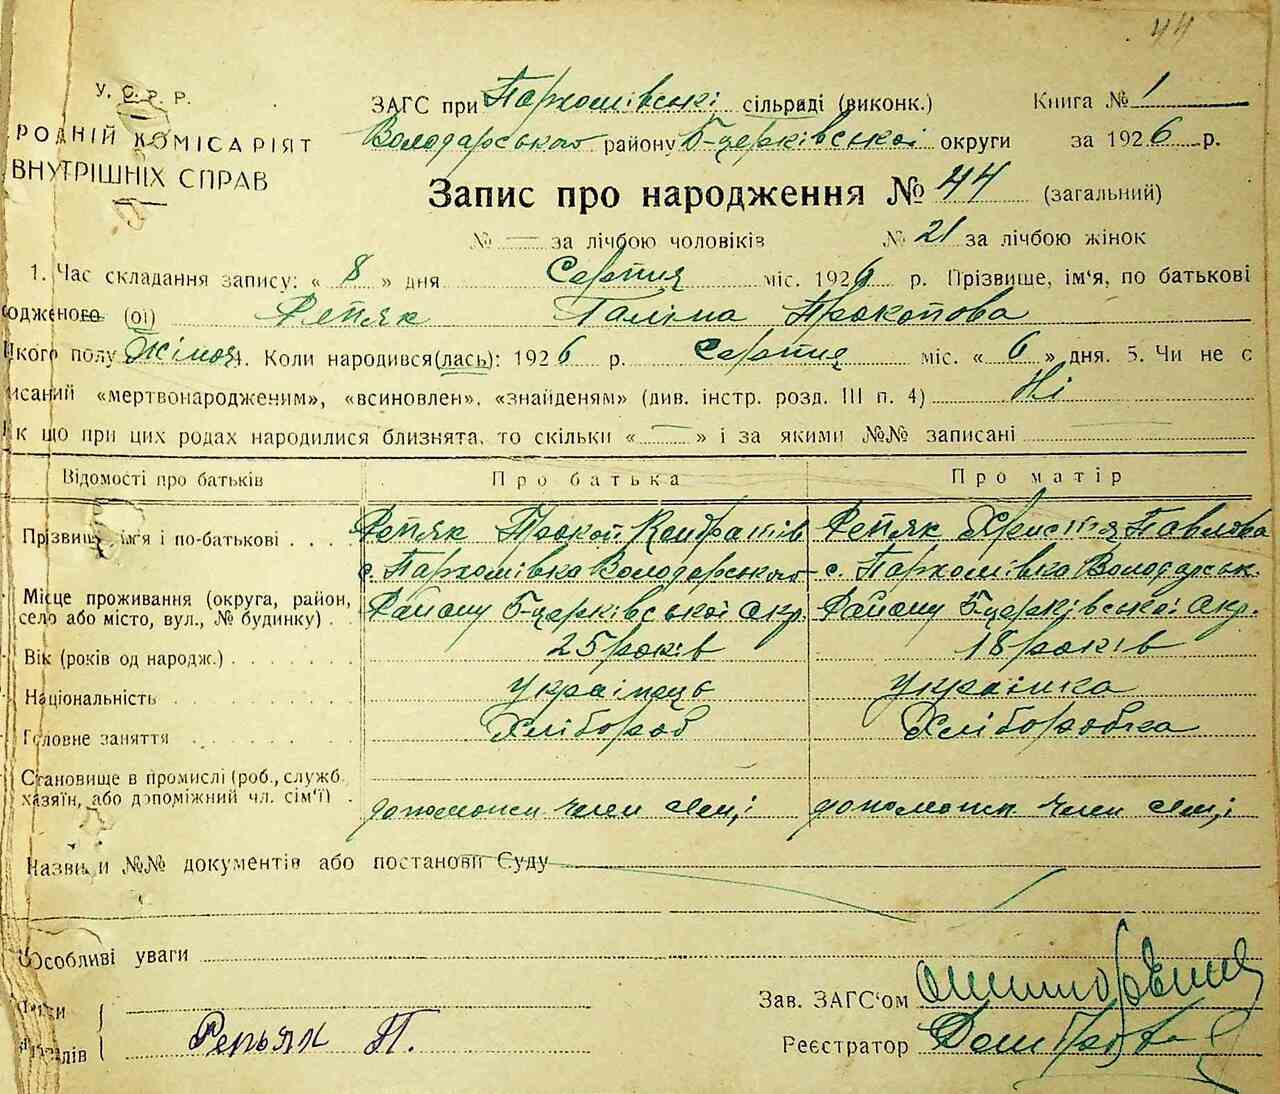 44
У. С. Р. Р.
ЗАГС при Пархомівські сільраді (виконк.) Книга № 1
РОДНІЙ КОМІСАРІЯТ
Володарського району Б-церківської округи за 1926 р.
ВНУТРІШНІХ СПРАВ
Запис про народження № 44 (загальний)
№ — за лічбою чоловіків № 21 за лічбою жінок
1. Час складання запису: « 8 » дня Серпня міс. 1926 р. Прізвище, ім'я, по батькові
одженого (ої) Репяк Галіна Прокопова
кого полу Жіноч 4. Коли народився(лась): 1926 р. Серпня міс. « 6 » дня. 5. Чи не є
исаний «мертвонародженим», «всиновлен», «знайденям» (див. інстр. розд. III п. 4) Ні
к що при цих родах народилися близнята, то скільки « — » і за якими №№ записані
Відомості про батьків Про батька Про матір
Прізвище, ім'я і по-батькові Репяк Прокоп Кондратів Репяк Христя Павлова
с. Пархомівка Володарського с. Пархомівка Володарськ.
Місце проживання (округа, район, село або місто, вул., № будинку) Району Б-церківської Окр. Району Б-церківської Окр.
Вік (років од народж.) 25 років 18 років
Національність Українець Українка
Головне заняття Хлібороб Хліборобка
Становище в промислі (роб., служб.
хазяїн, або допоміжний чл. сім'ї) допоможн член сем,ї допоможн. член сем,ї
Назви и №№ документів або постанови Суду
Особливі уваги
Зав. ЗАГС'ом
Репьях П.
Реєстратор